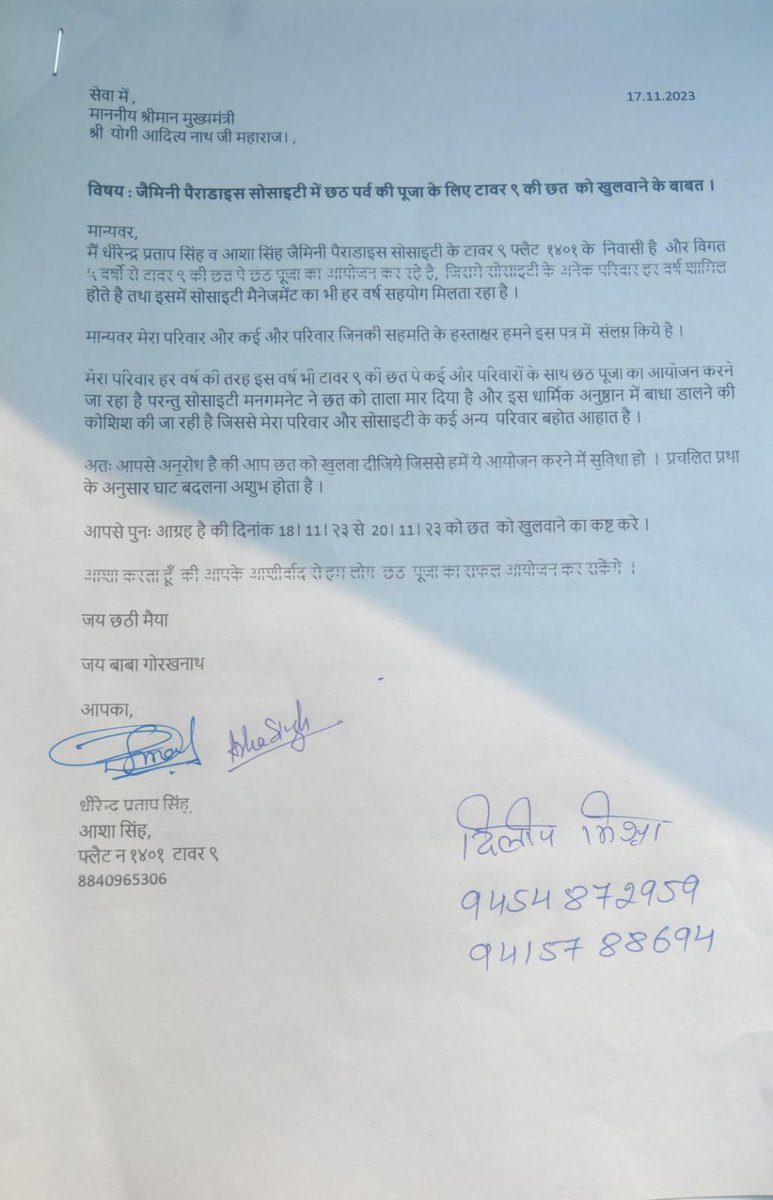 सेवा में ,
17.11.2023
माननीय श्रीमान मुख्यमंत्री
श्री योगी आदित्य नाथ जी महाराज। ,
विषय : जैमिनी पैराडाइस सोसाइटी में छठ पर्व की पूजा के लिए टावर ९ की छत को खुलवाने के बाबत ।
मान्यवर,
मैं धीरेन्द्र प्रताप सिंह व आशा सिंह जैमिनी पैराडाइस सोसाइटी के टावर ९ फ्लैट १४०१ के निवासी है और विगत
५ वर्षो से टावर ९ की छत पे छठ पूजा का आयोजन कर रहे है, जिसमे सोसाइटी के अनेक परिवार हर वर्ष शामिल
होते है तथा इसमें सोसाइटी मैनेजमेंट का भी हर वर्ष सहयोग मिलता रहा है ।
मान्यवर मेरा परिवार और कई और परिवार जिनकी सहमति के हस्ताक्षर हमने इस पत्र में संलग्न किये है ।
मेरा परिवार हर वर्ष की तरह इस वर्ष भी टावर ९ की छत पे कई और परिवारों के साथ छठ पूजा का आयोजन करने
जा रहा है परन्तु सोसाइटी मनगमनेट ने छत को ताला मार दिया है और इस धार्मिक अनुष्ठान में बाधा डालने की
कोशिश की जा रही है जिससे मेरा परिवार और सोसाइटी के कई अन्य परिवार बहोत आहात है ।
अतः आपसे अनुरोध है की आप छत को खुलवा दीजिये जिससे हमें ये आयोजन करने में सुविधा हो । प्रचलित प्रथा
के अनुसार घाट बदलना अशुभ होता है ।
आपसे पुनः आग्रह है की दिनांक 18। 11। २३ से 20। 11। २३ को छत को खुलवाने का कष्ट करे ।
आशा करता हूँ की आपके आशीर्वाद से हम लोग छठ पूजा का सफल आयोजन कर सकेंगे ।
जय छठी मैया
जय बाबा गोरखनाथ
आपका,
Asha Singh
धीरेन्द्र प्रताप सिंह,
आशा सिंह,
फ्लैट न १४०१ टावर ९
8840965306
दिलीप मिश्रा
9454872959
9415788694